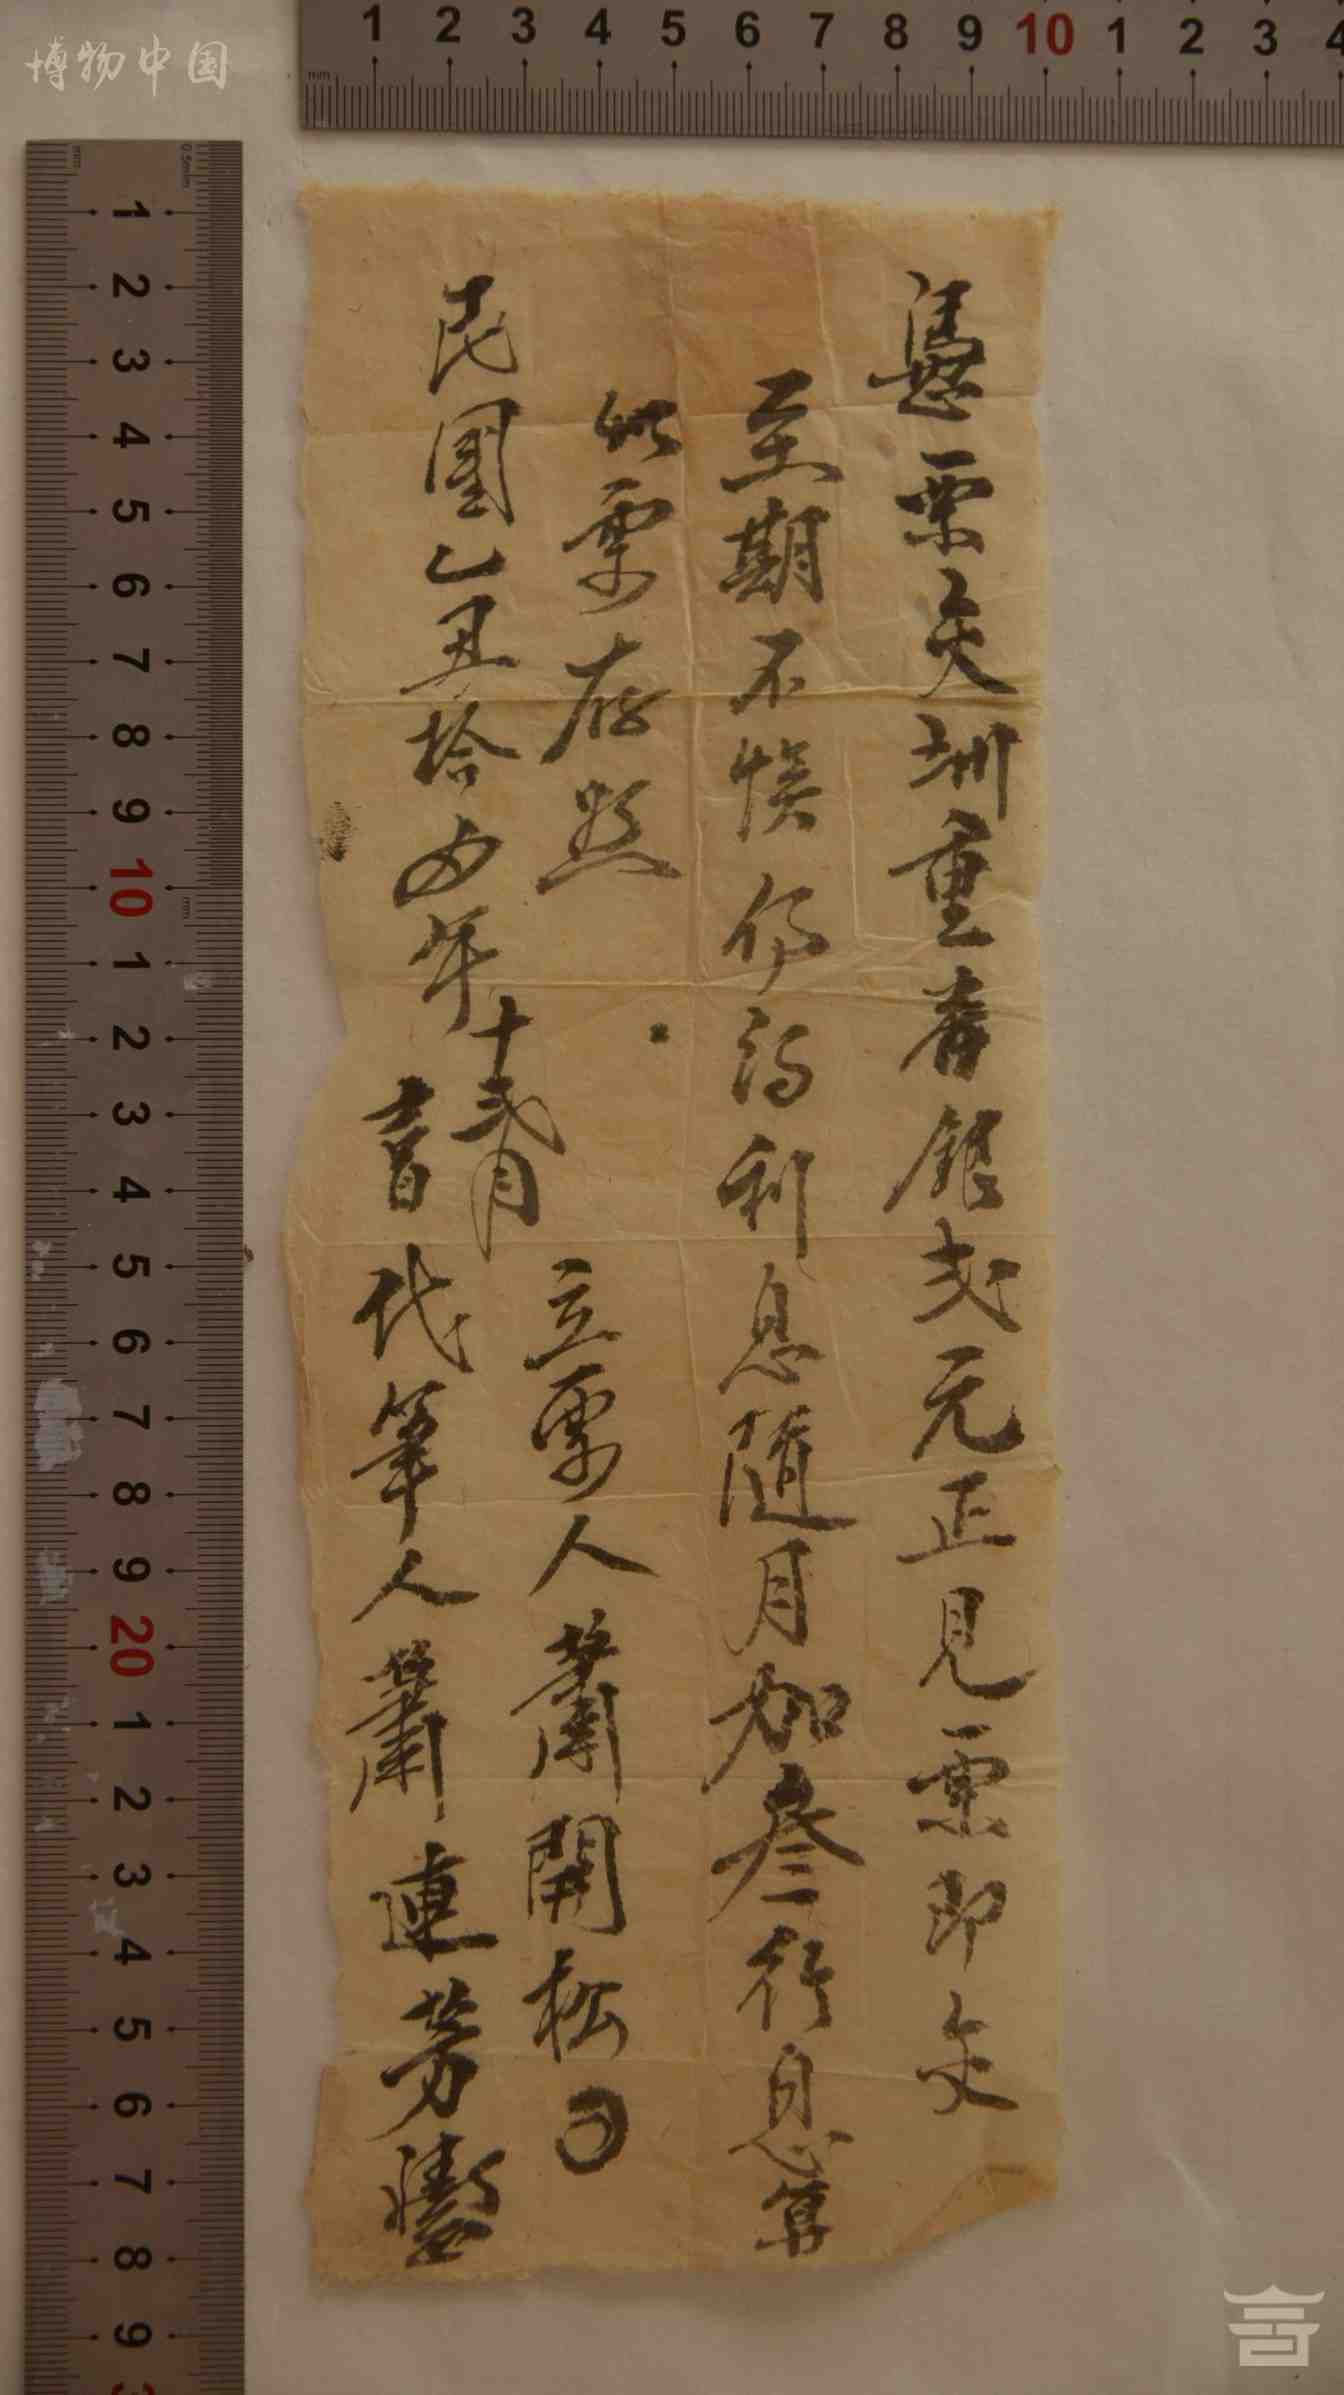 憑票交圳重番銀弍元正見票即交
至期不悞仍行利息隨月加叁行息算
此票存照
民國乙丑拾四年十弍月
立票人蕭開松
書代筆人蕭連芳
博物中国
mm 1 2 3 4 5 6 7 8 9 10 1 2 3 4
mm 0.5mm 1 2 3 4 5 6 7 8 9 10 1 2 3 4 5 6 7 8 9 20 1 2 3 4 5 6 7 8 9 3